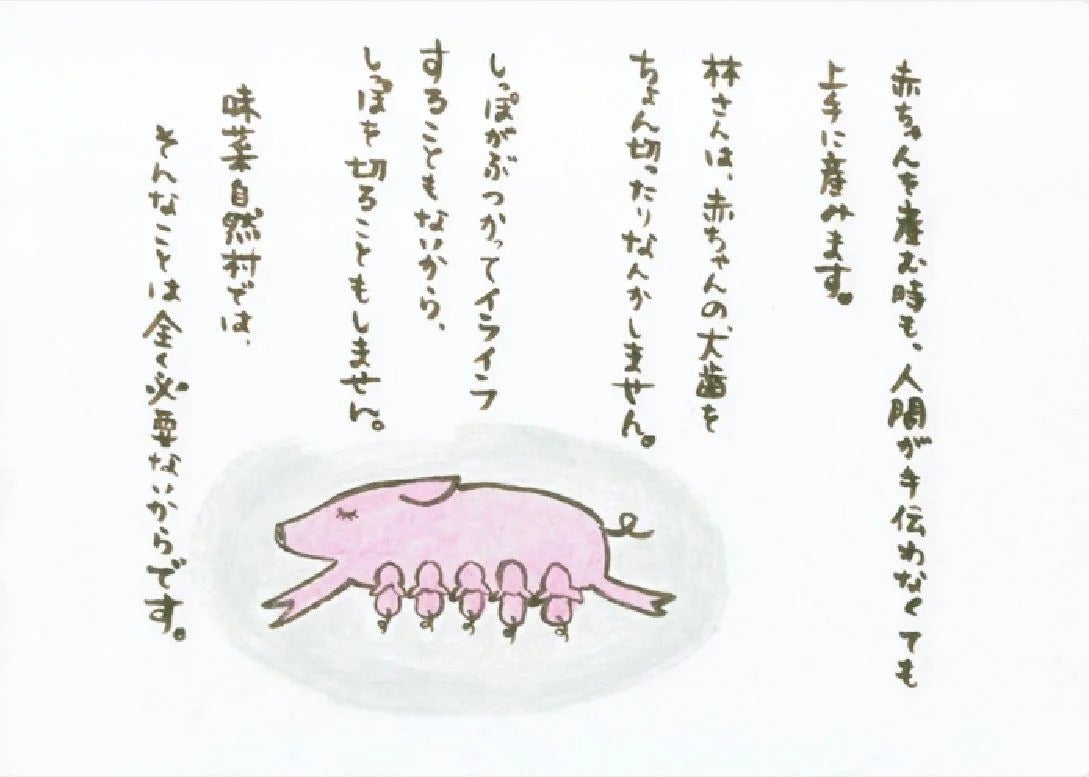 赤ちゃんを産む時も、人間が手伝わなくても
上手に産みます。
林さんは、赤ちゃんの犬歯を
ちょん切ったりなんかしません。
しっぽがぶつかってイライラ
することもないから、
しっぽを切ることもしません。
味菜自然村では、
そんなことは全く必要ないからです。